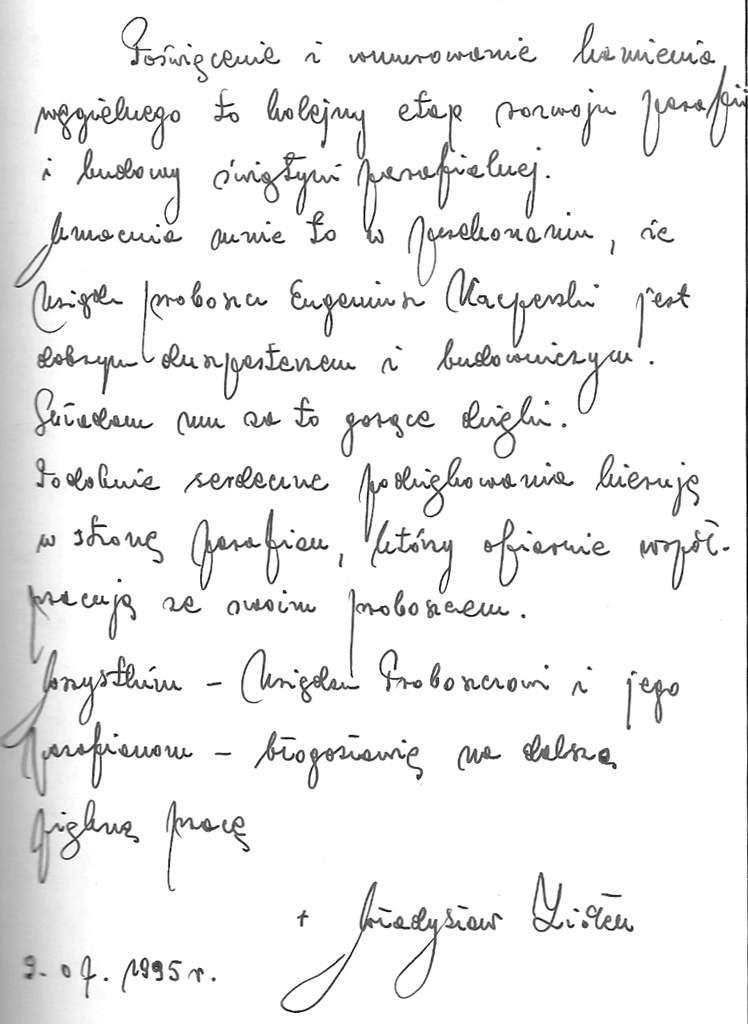 Poświęcenie i wmurowanie kamienia
węgielnego to kolejny etap rozwoju parafii
i budowy świątyni parafialnej.
Umacnia mnie to w przekonaniu, że
Ksiądz proboszcz Eugeniusz Kacperski jest
dobrym duszpasterzem i budowniczym.
Składam mu za to gorące dzięki.
Podobnie serdeczne podziękowania kieruję
w stronę parafian, którzy ofiarnie współ-
pracują ze swoim proboszczem.
Wszystkim - Księdzu Proboszczowi i jego
parafianom - błogosławię na dalszą
piękną pracę
+ Władysław Ziółek
9.07.1995 r.